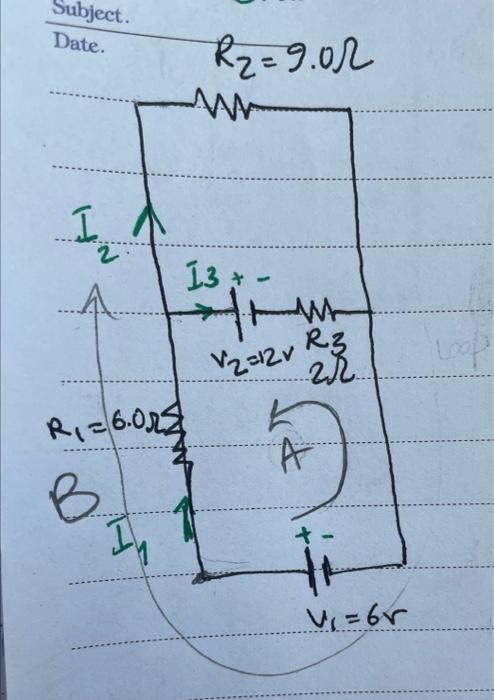 Subject.
Date.
R2 = 9.0Ω
I2
I3 + -
V2=12V
R3
2Ω
R1 = 6.0Ω
A
B
I1
+ -
V1 = 6V